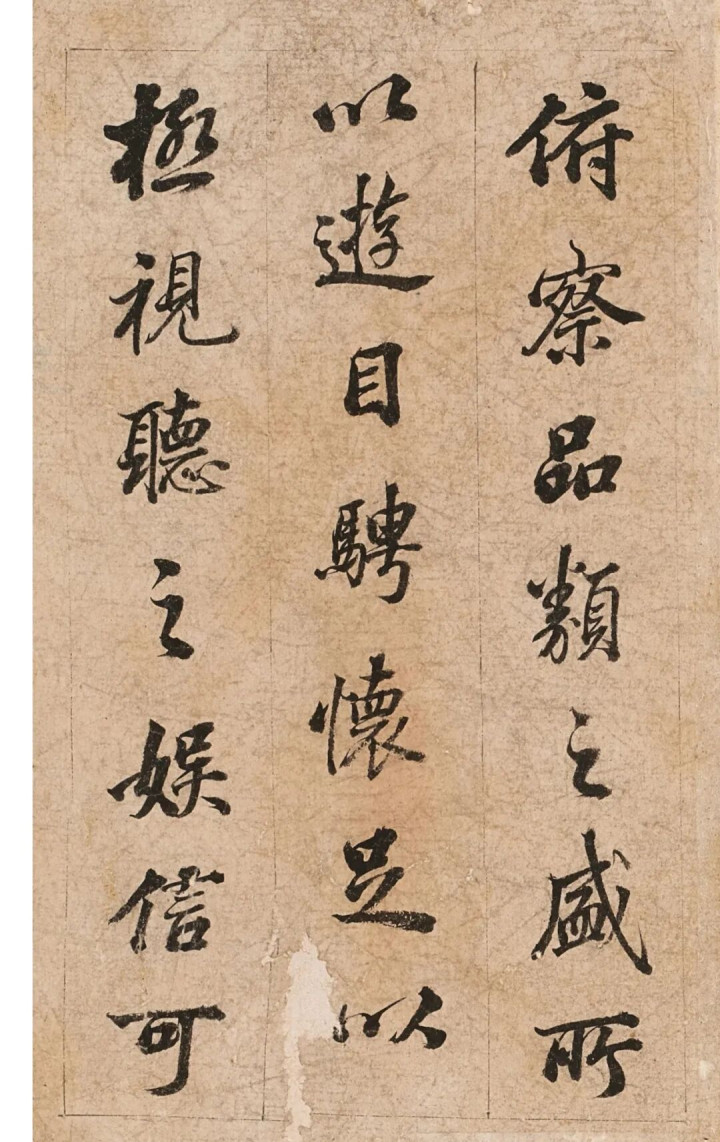 俯察品類之盛所
以遊目騁懷足以
極視聽之娛信可